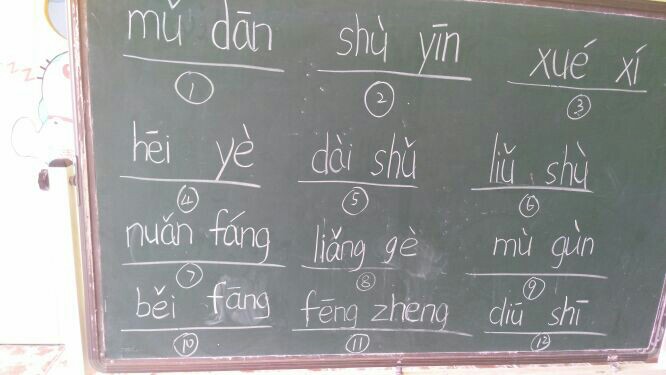 mǔ dān shù yīn xué xí
① ② ③
hēi yè dài shǔ liǔ shù
④ ⑤ ⑥
nuǎn fáng liǎng gè mù gùn
⑦ ⑧ ⑨
běi fāng fēng zheng diū shī
⑩ ⑪ ⑫